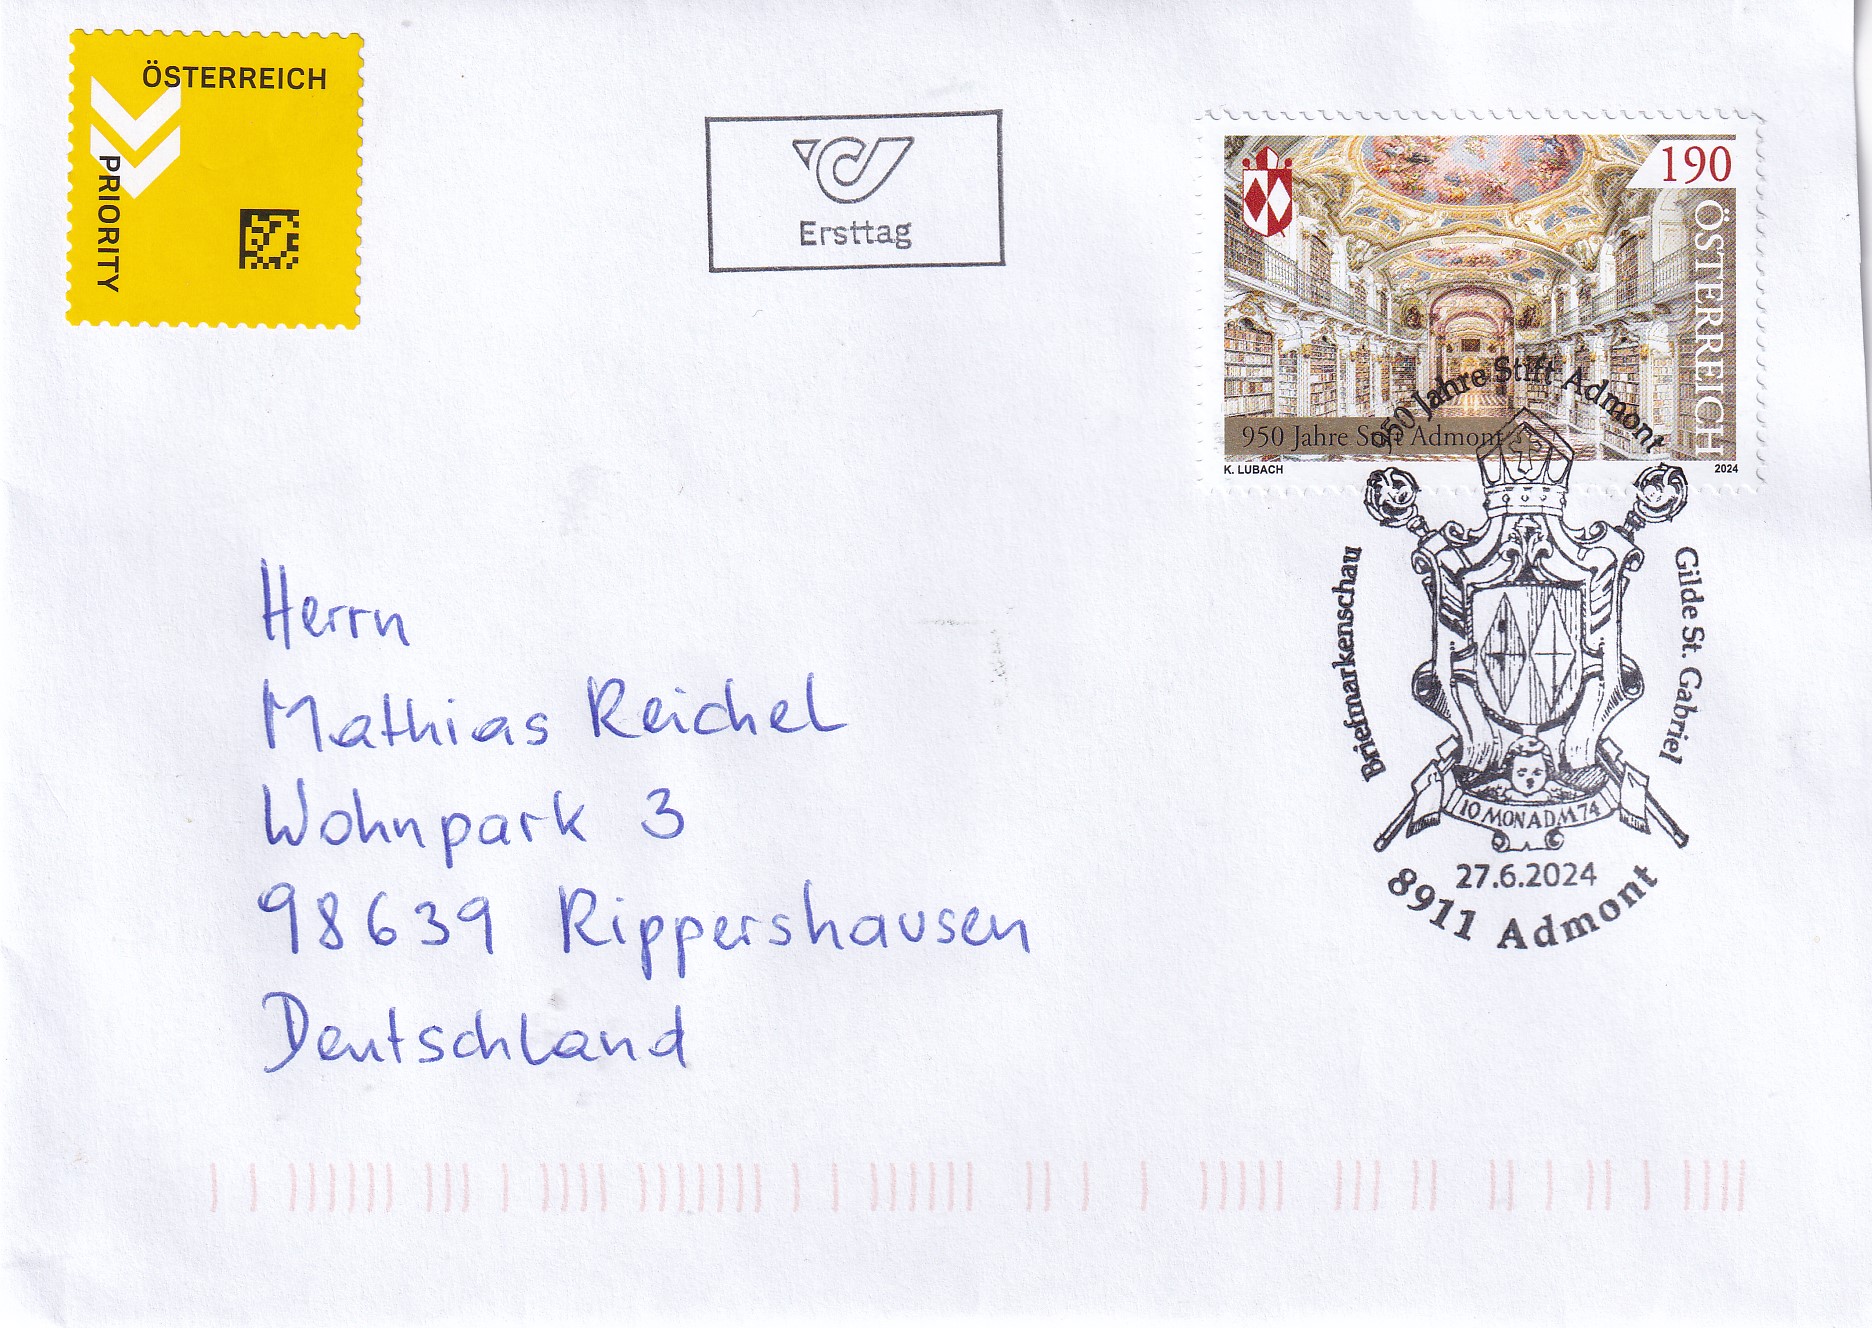 ÖSTERREICH
PRIORITY
Ersttag
190
ÖSTERREICH
950 Jahre Stift Admont
K. LUBACH
2024
950 Jahre Stift Admont
Briefmarkenschau
Gilde St. Gabriel
10 MON ADM 74
27.6.2024
8911 Admont
Herrn
Mathias Reichel
Wohnpark 3
98639 Rippershausen
Deutschland